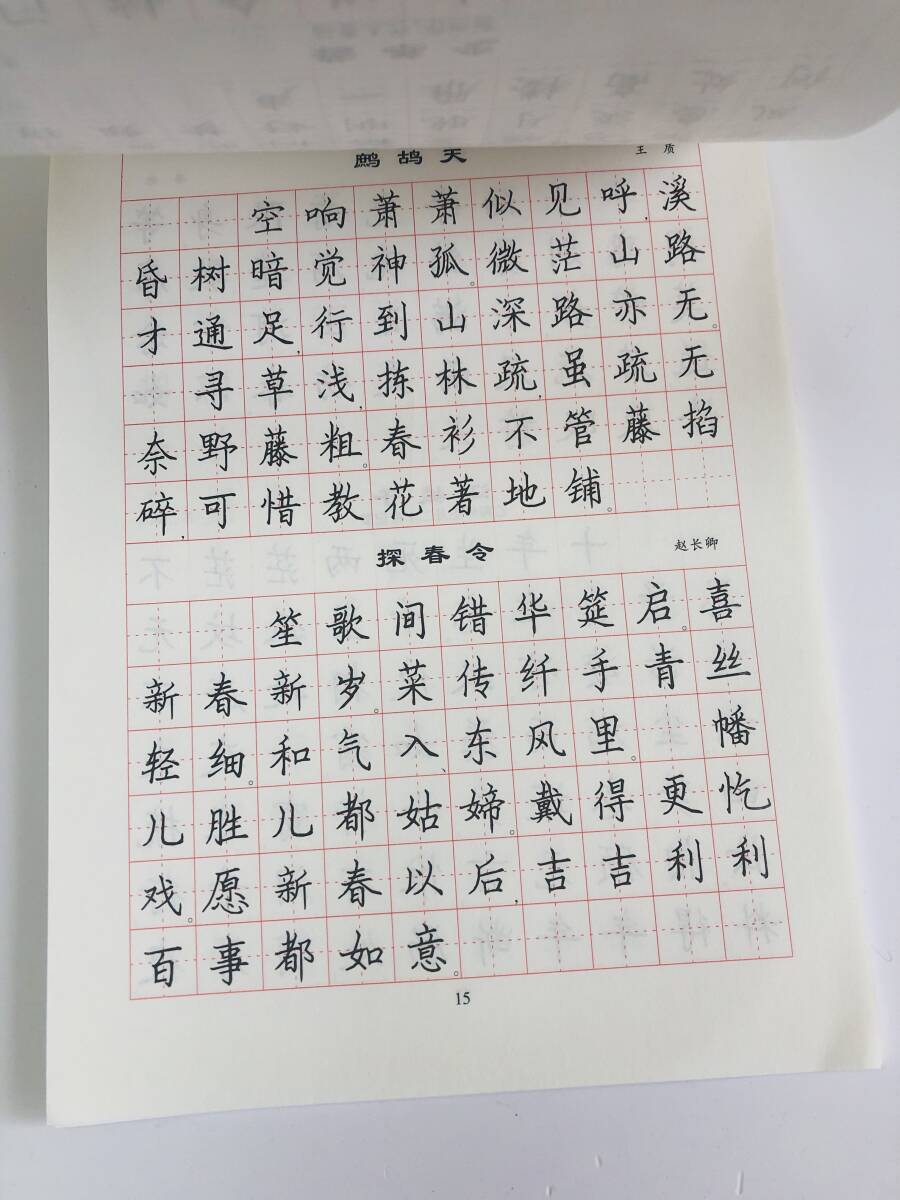 鹧鸪天 王质
空响萧萧似见呼,溪
昏树暗觉神孤。微茫山路
才通足,行到山深路亦无。
寻草浅,拣林疏,虽疏无
奈野藤粗。春衫不管藤掐
碎,可惜教花著地铺。
探春令 赵长卿
笙歌间错华筵启。喜
新春新岁。菜传纤手青丝
轻细。和气入、东风里。 幡
儿胜儿都姑媂。戴得更忔
戏。愿新春以后,吉吉利利
百事都如意。
15